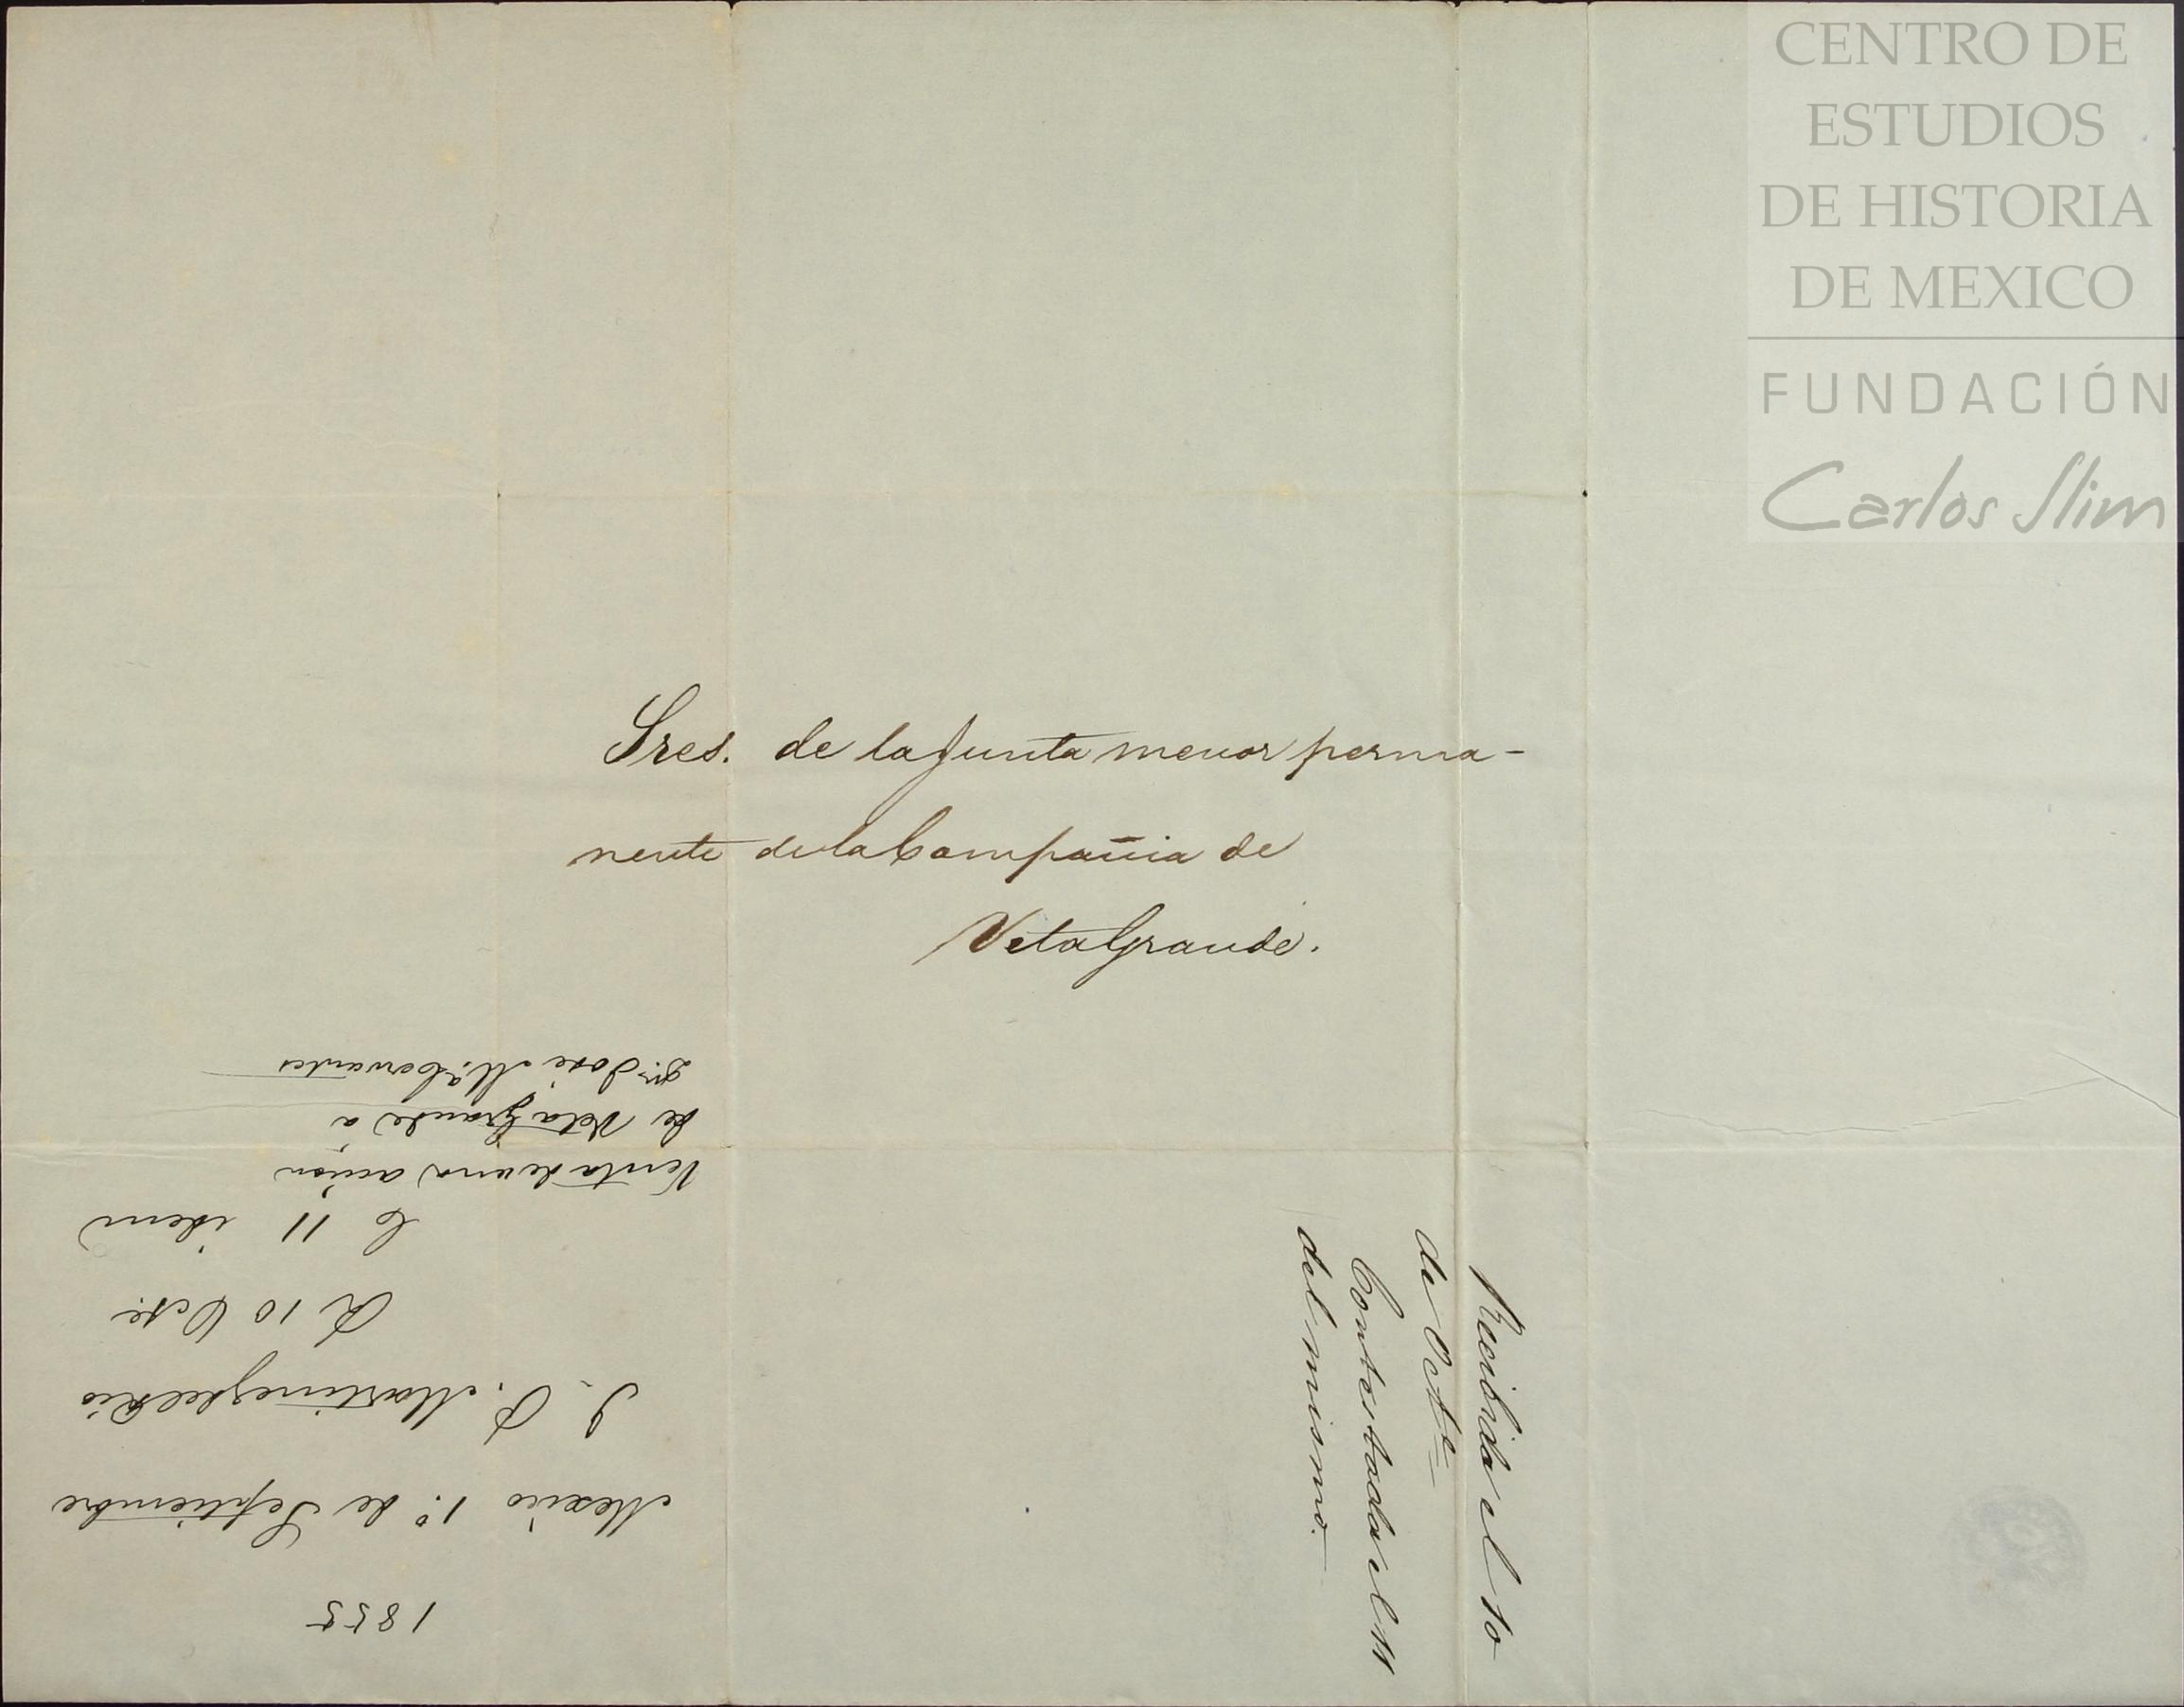 CENTRO DE
ESTUDIOS
DE HISTORIA
DE MEXICO
FUNDACIÓN
Carlos Slim
Sres. de la Junta menor perma-
nente de la Compañia de
Veta Grande.
Recibida el 10
de Octe
Contestada el 11
del mismo.
1855
Mexico 1º de Septiembre
J. P. Martinez del Rio
R 10 Octe.
C 11 idem
Venta de una accion
de Veta Grande á
Dn José M.a Cervantes